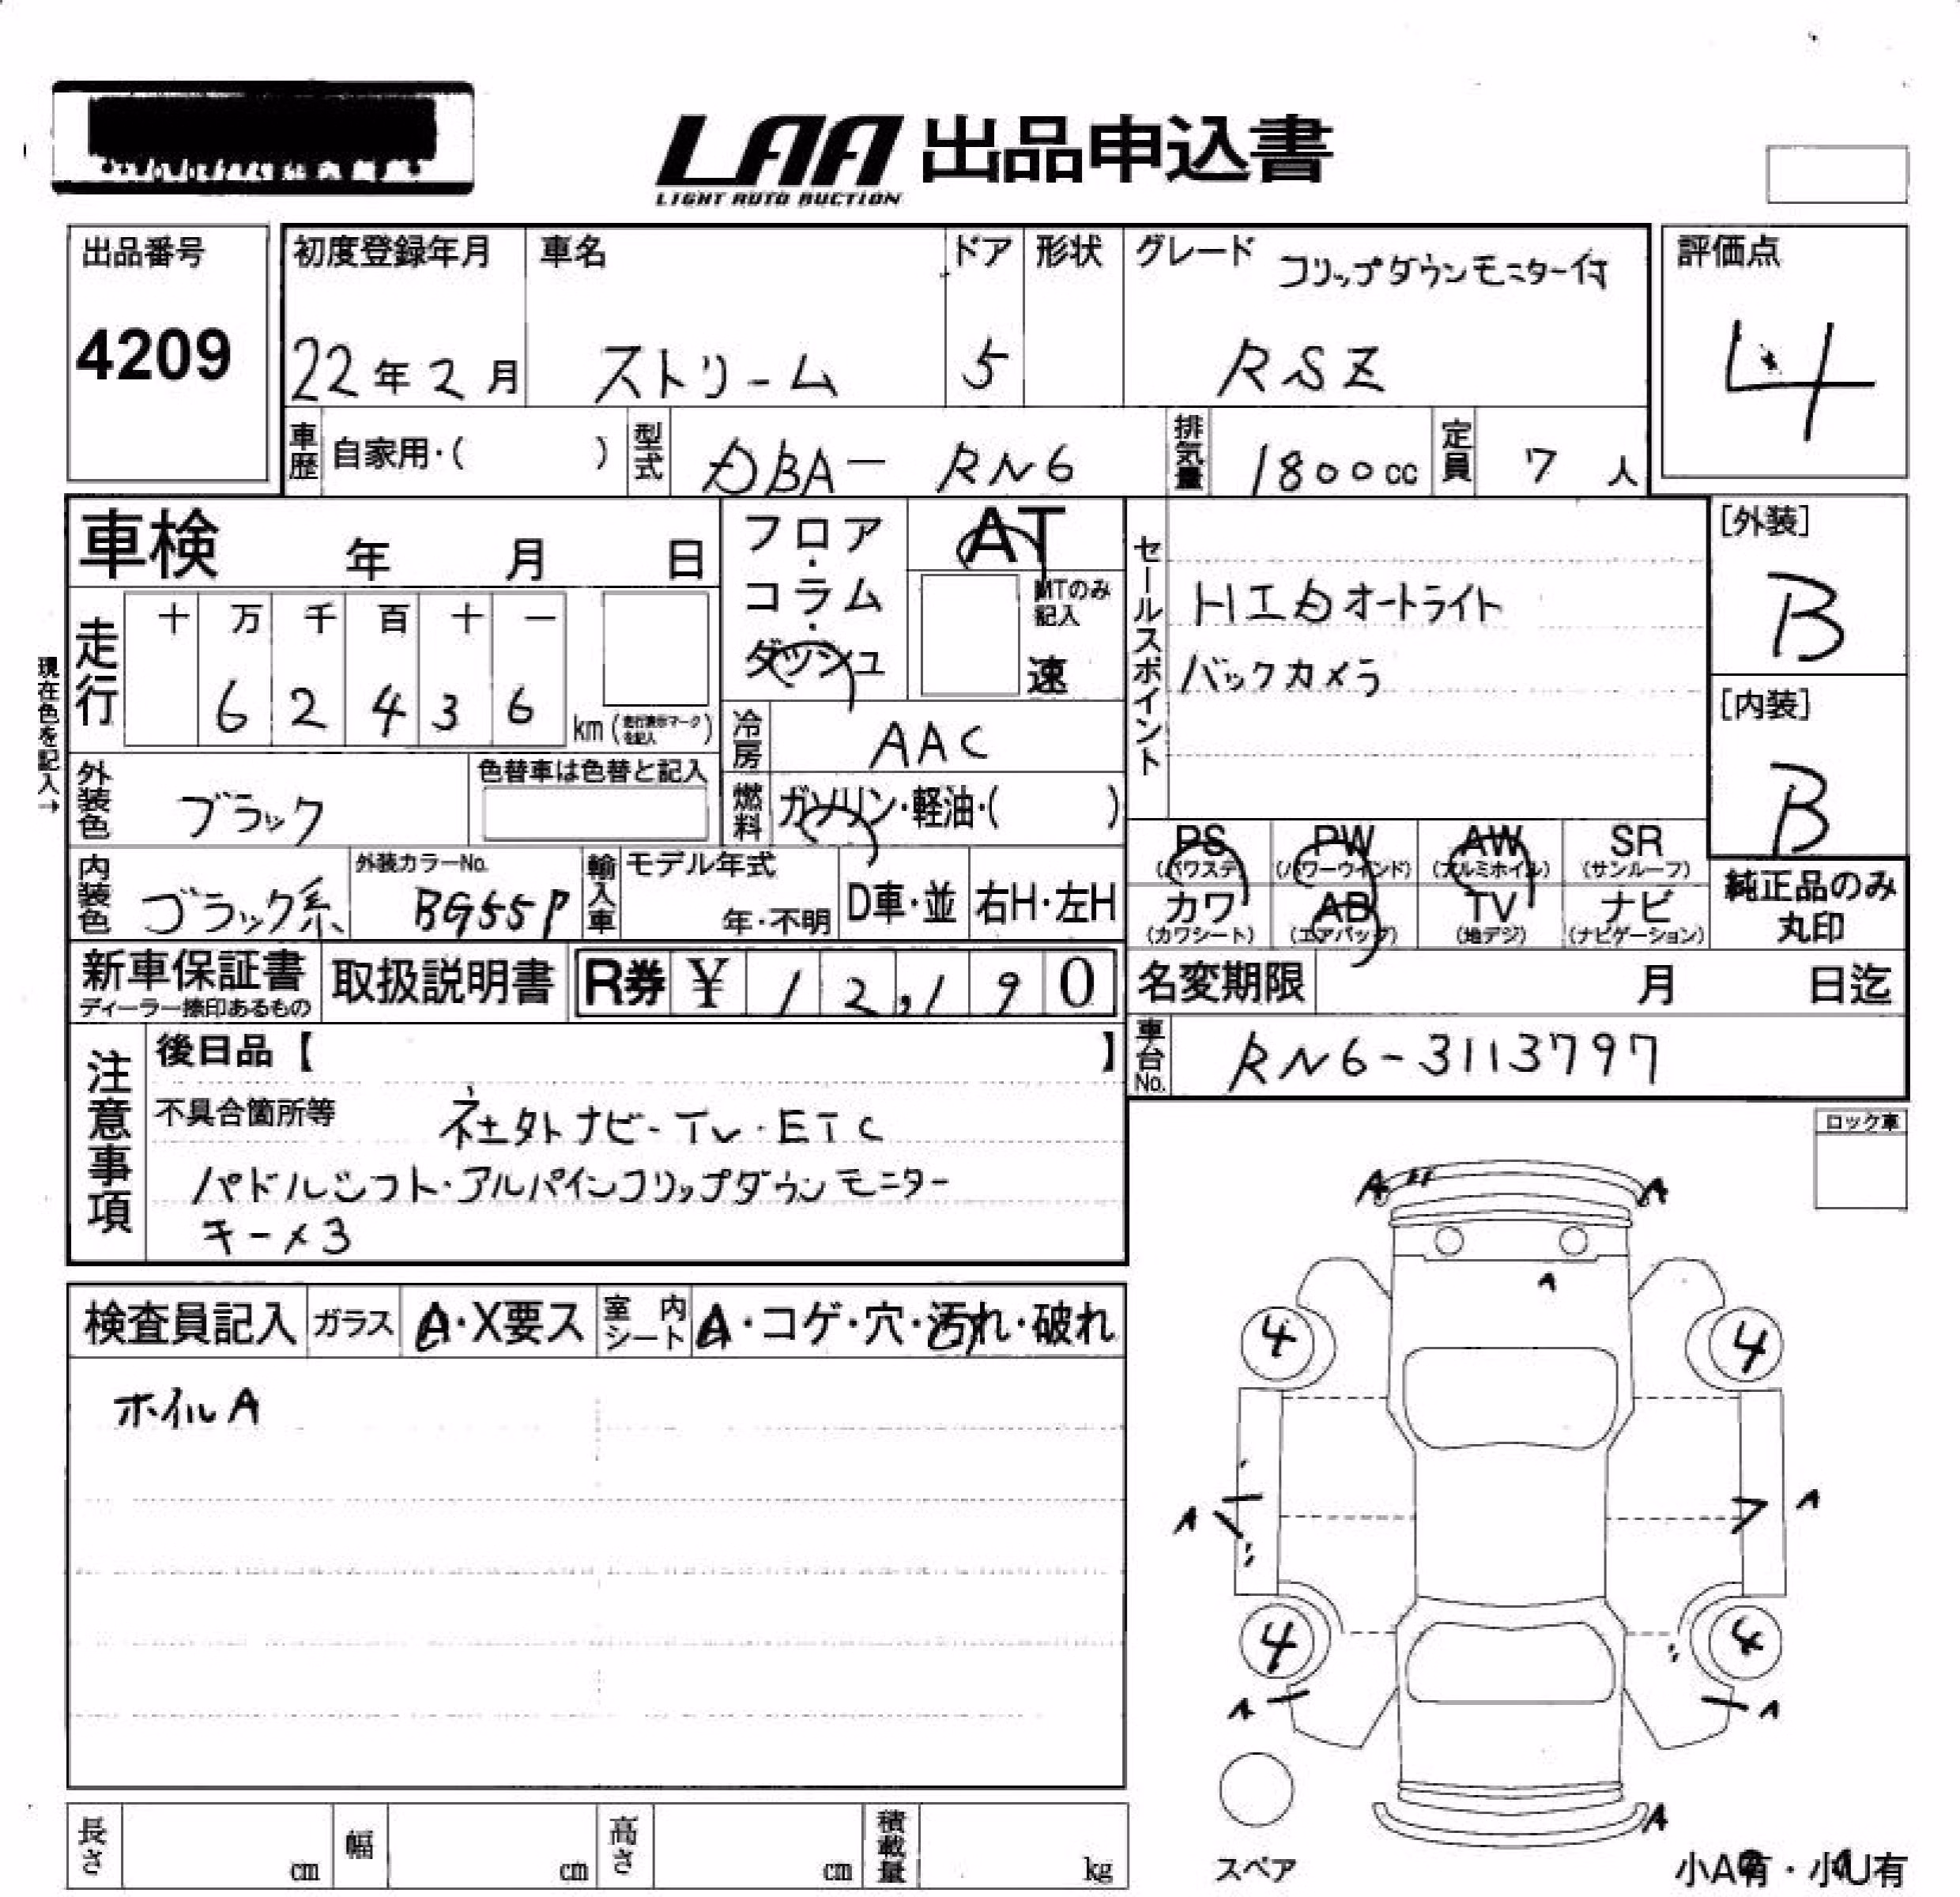 LAA 出品申込書
LIGHT AUTO AUCTION
出品番号
4209
初度登録年月
22年2月
車名
ストリーム
ドア
5
形状
グレード
フリップダウンモニター付
RSZ
評価点
4
車歴 自家用・( )
型式 DBA- RN6
排気量 1800cc
定員 7人
車検 年 月 日
フロア・コラム・ダッシュ
AT
MTのみ記入
速
セールスポイント
HID オートライト
バックカメラ
[外装]
B
[内装]
B
走行
十 万 千 百 十 一
6 2 4 3 6
km (走行表示マークを記入)
現在色を記入→
冷房 AAC
外装色 ブラック
色替車は色替と記入
燃料 ガソリン・軽油・( )
内装色 ブラック系
外装カラーNo.
BG55P
輸入車
モデル年式
年・不明
D車・並
右H・左H
PS (パワステ)
PW (パワーウインド)
AW (アルミホイル)
SR (サンルーフ)
カワ (カワシート)
AB (エアバッグ)
TV (地デジ)
ナビ (ナビゲーション)
純正品のみ
丸印
新車保証書
ディーラー捺印あるもの
取扱説明書
R券 ¥ 12,190
名変期限 月 日迄
車台No. RN6-3113797
注意事項
後日品【 】
不具合箇所等
社外ナビ-TV・ETC
パドルシフト・アルパインフリップダウンモニター
キー×3
ロック車
検査員記入
ガラス A・X要ス
室内シート A・コゲ・穴・汚れ・破れ
ホイルA
A A
A
4 4
A A
4 4
A A
A
スペア
小A有・小U有
長さ cm
幅 cm
高さ cm
積載量 kg